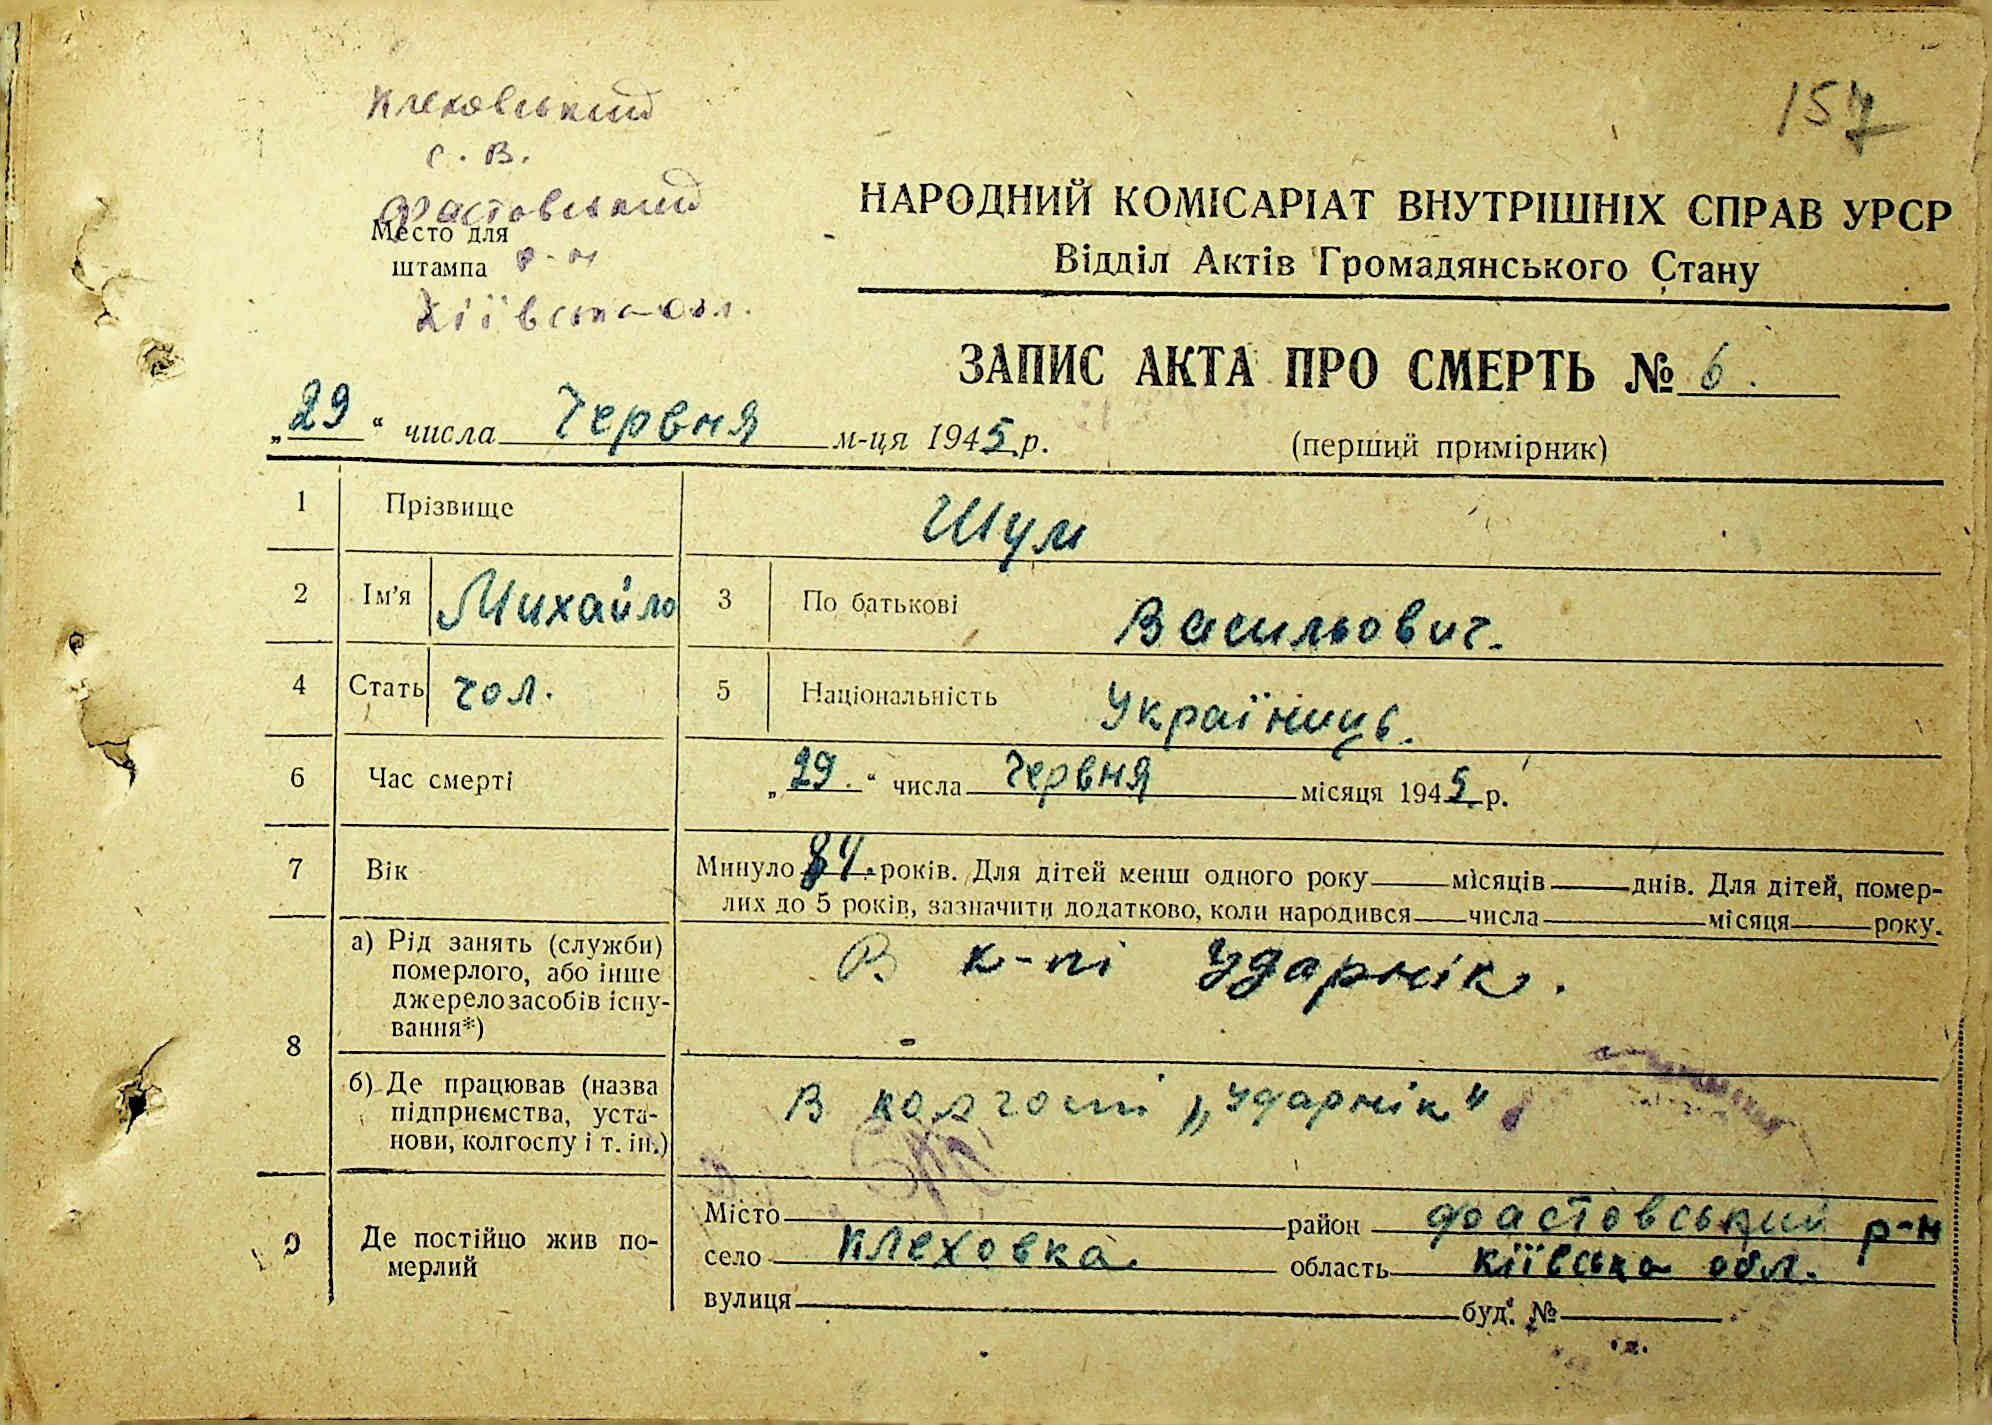 157
Клеховський
с. в.
Фастовський
Место для
штампа р-н
Київська обл.
НАРОДНИЙ КОМІСАРІАТ ВНУТРІШНІХ СПРАВ УРСР
Відділ Актів Громадянського Стану
ЗАПИС АКТА ПРО СМЕРТЬ № 6.
„29“ числа Червня м-ця 1945 р.
(перший примірник)
1 Прізвище Шум
2 Ім'я Михайло 3 По батькові Васильович.
4 Стать чол. 5 Національність Украіниць.
6 Час смерті „29.“ числа Червня місяця 1945 р.
7 Вік Минуло 84. років. Для дітей менш одного року місяців днів. Для дітей, помер-
лих до 5 років, зазначити додатково, коли народився числа місяця року.
8 а) Рід занять (служби)
померлого, або інше
джерело засобів існу-
вання*)
В к-пі Ударнік.
б) Де працював (назва
підприємства, уста-
нови, колгоспу і т. ін.)
В колгоспі „Ударнік"
9 Де постійно жив по-
мерлий
Місто район Фастовський р-н
село Клеховка. область Київська обл.
вулиця буд. №